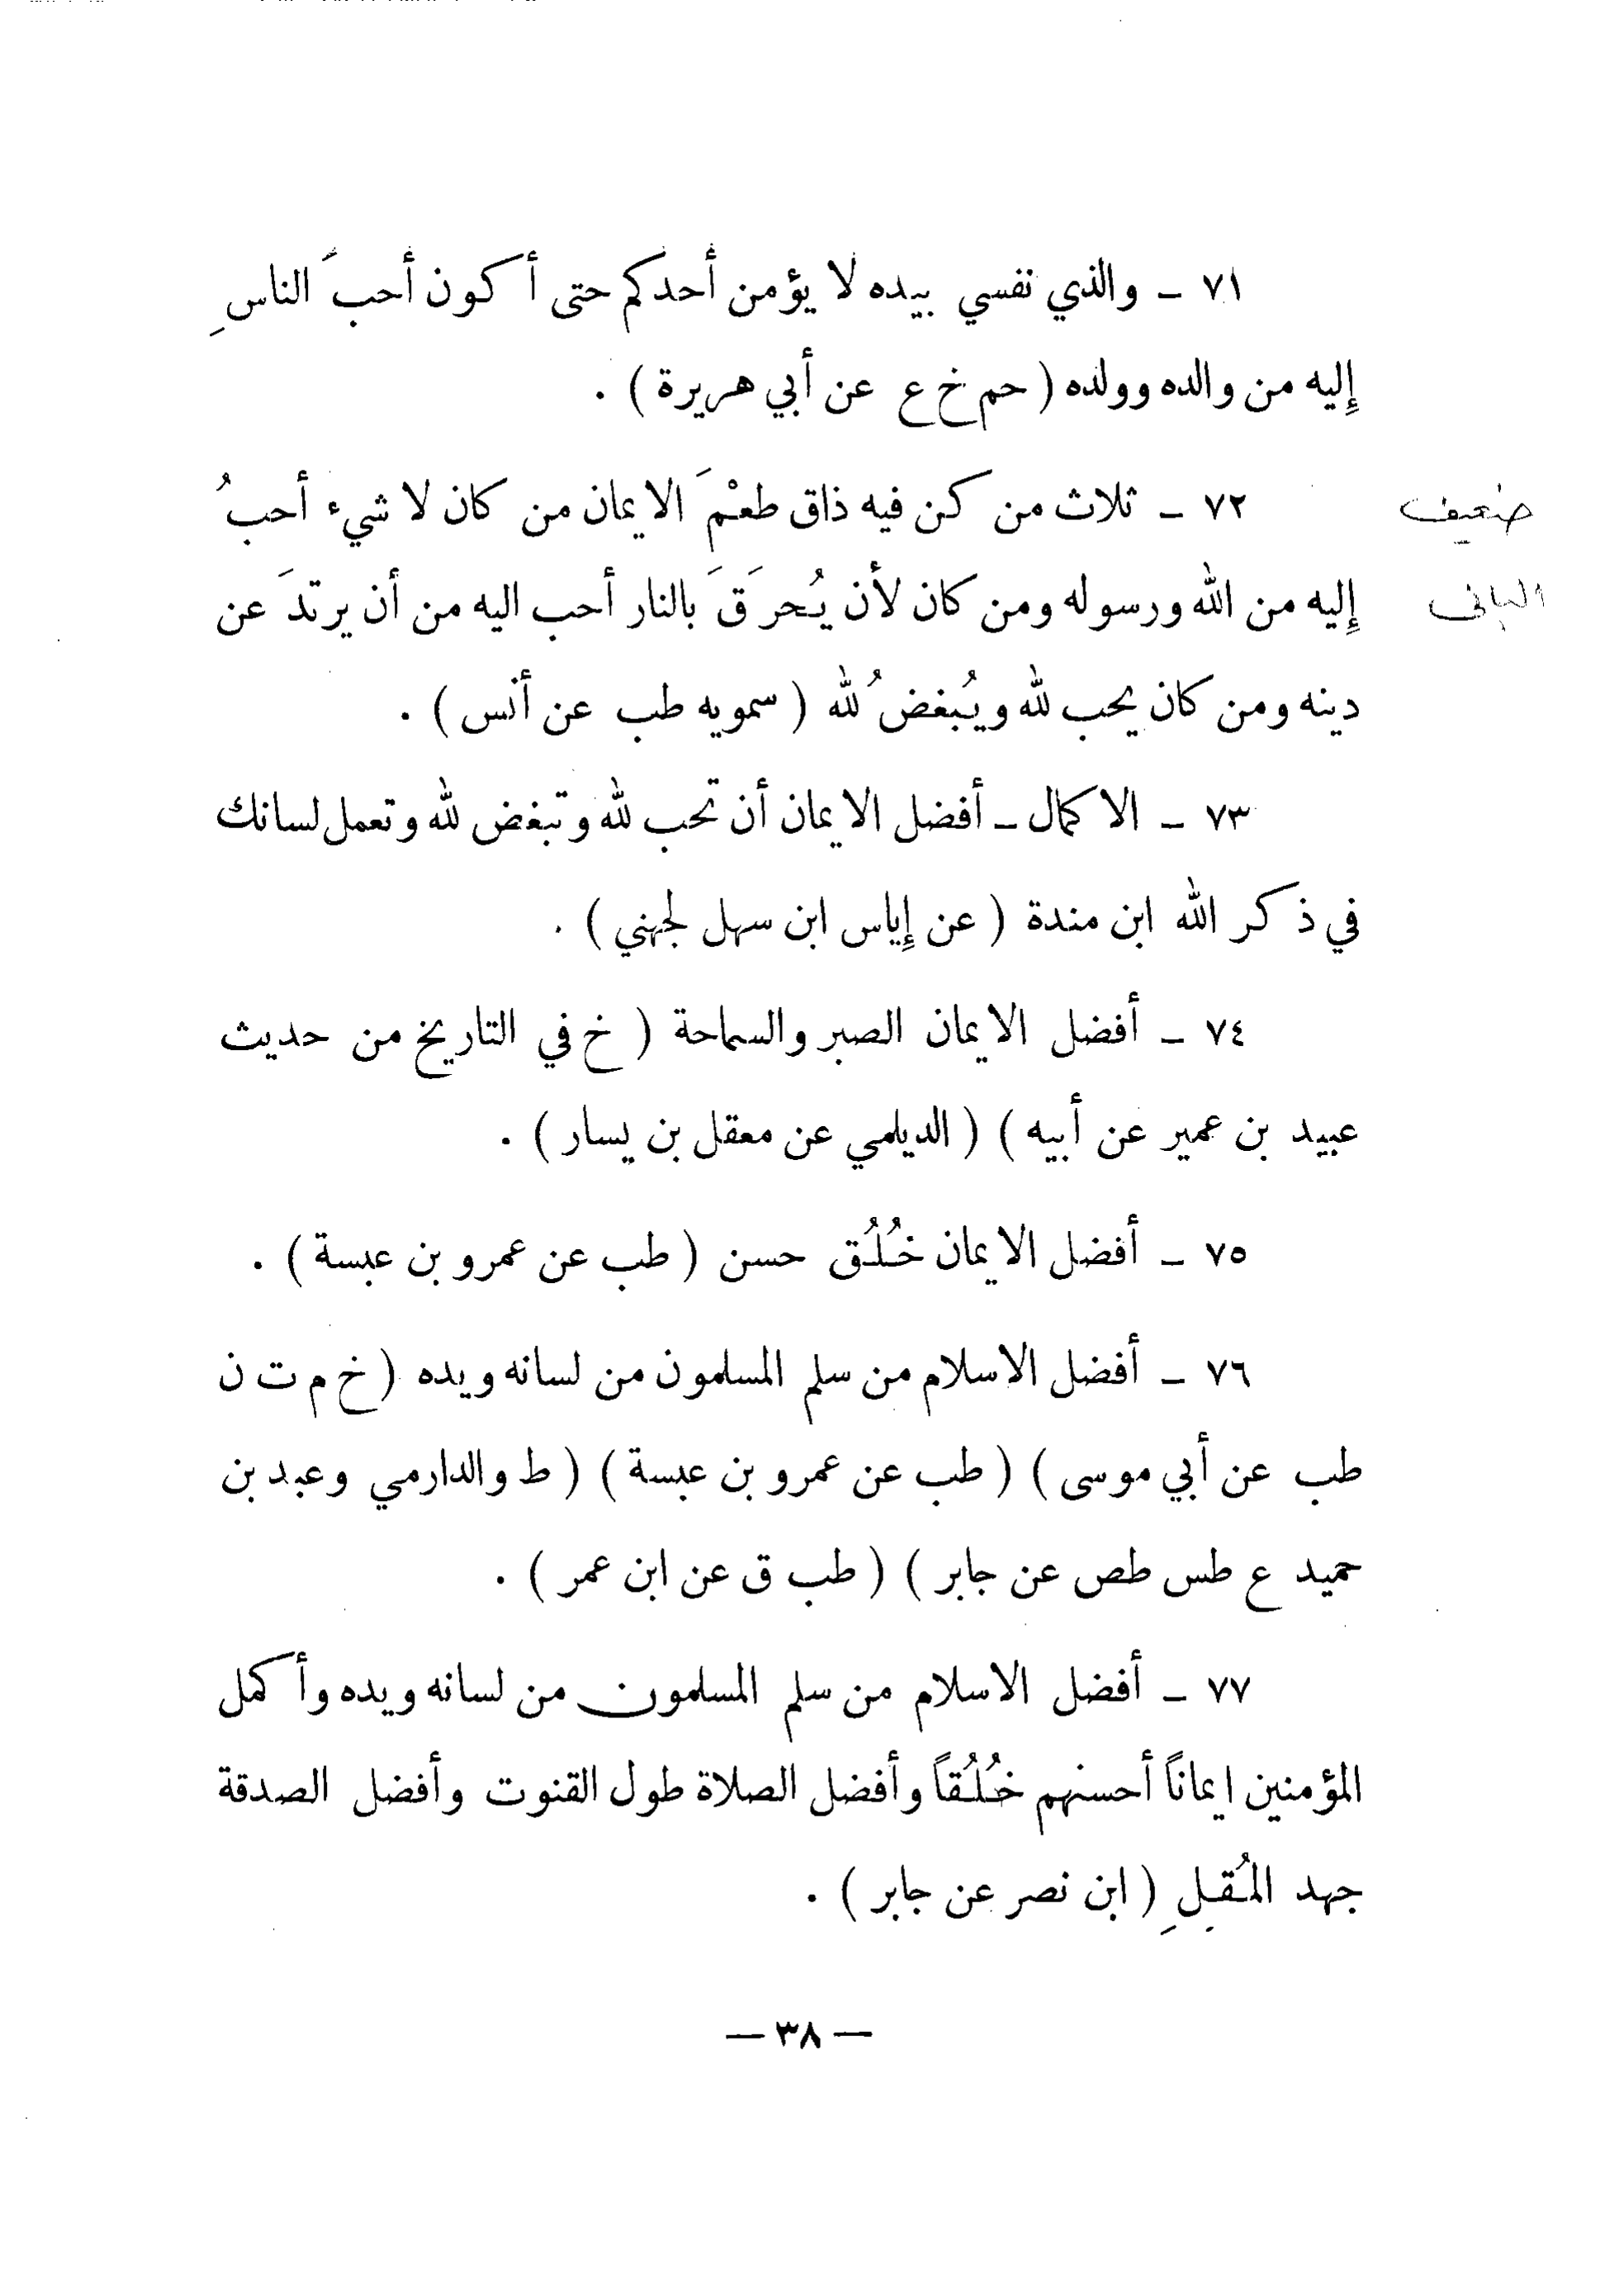 ٧١ ـ والذي نفسي بيده لا يؤمن أحدكم حتى أكون أحبَ الناسِ
إِليه من والده وولده ( حم خ ع عن أبي هريرة ) .
٧٢ ـ ثلاث من كن فيه ذاق طعْمَ الايمان من كان لا شيء أحبُ
ضعيف
إِليه من الله ورسوله ومن كان لأن يُحرَقَ بالنار أحب اليه من أن يرتدَ عن
البانى
دينه ومن كان يحب لله ويُبغضُ لله ( سمويه طب عن أنس ) .
٧٣ ـ الاكمال ـ أفضل الايمان أن تحب لله وتبغض لله وتعمل لسانك
في ذكر الله ابن مندة ( عن إِياس ابن سهل لجهني ) .
٧٤ ـ أفضل الايمان الصبر والسماحة ( خ في التاريخ من حديث
عبيد بن عمير عن أبيه ) ( الديلمي عن معقل بن يسار ) .
٧٥ ـ أفضل الايمان خُلُق حسن ( طب عن عمرو بن عبسة ) .
٧٦ ـ أفضل الاسلام من سلم المسلمون من لسانه ويده ( خ م ت ن
طب عن أبي موسى ) ( طب عن عمرو بن عبسة ) ( ط والدارمي وعبد بن
حميد ع طس طص عن جابر ) ( طب ق عن ابن عمر ) .
٧٧ ـ أفضل الاسلام من سلم المسلمون من لسانه ويده وأكمل
المؤمنين ايماناً أحسنهم خُلُقاً وأفضل الصلاة طول القنوت وأفضل الصدقة
جهد المُقلِ ( ابن نصر عن جابر ) .
— ٣٨ —